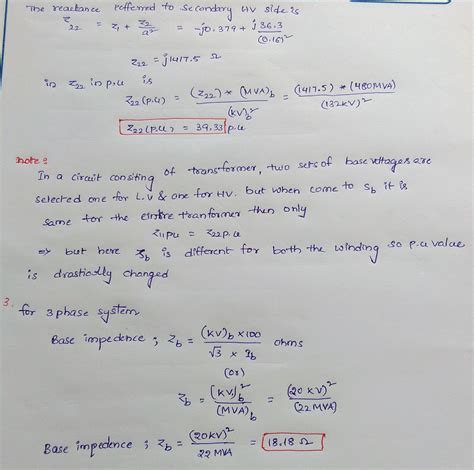 The reactance refferred to secondary HV side is
Z22 = Z1 + Z2/a² = -j0.379 + j36.3/(0.16)²
Z22 = j1417.5 Ω
in Z22 in p.u is
Z22(p.u) = (Z22) * (MVA)b/(kV)b² = (1417.5) * (480MVA)/(132KV)²
Z22(p.u) = 39.33 p.u
note :
In a circuit consiting of transformer, two sets of base voltages are
selected one for L.V & one for HV. but when come to Sb it is
same for the eintire tranformer then only
Z11pu = Z22p.u
⇒ but here Sb is different for both the winding so p.u value
is drastically changed
3. for 3 phase system
Base impedence ; Zb = (KV)b × 100/√3 × Ib ohms
(or)
Zb = (KV)b²/(MVA)b = (20 KV)²/(22 MVA)
Base impedence ; Zb = (20KV)²/22 MVA = 18.18 Ω